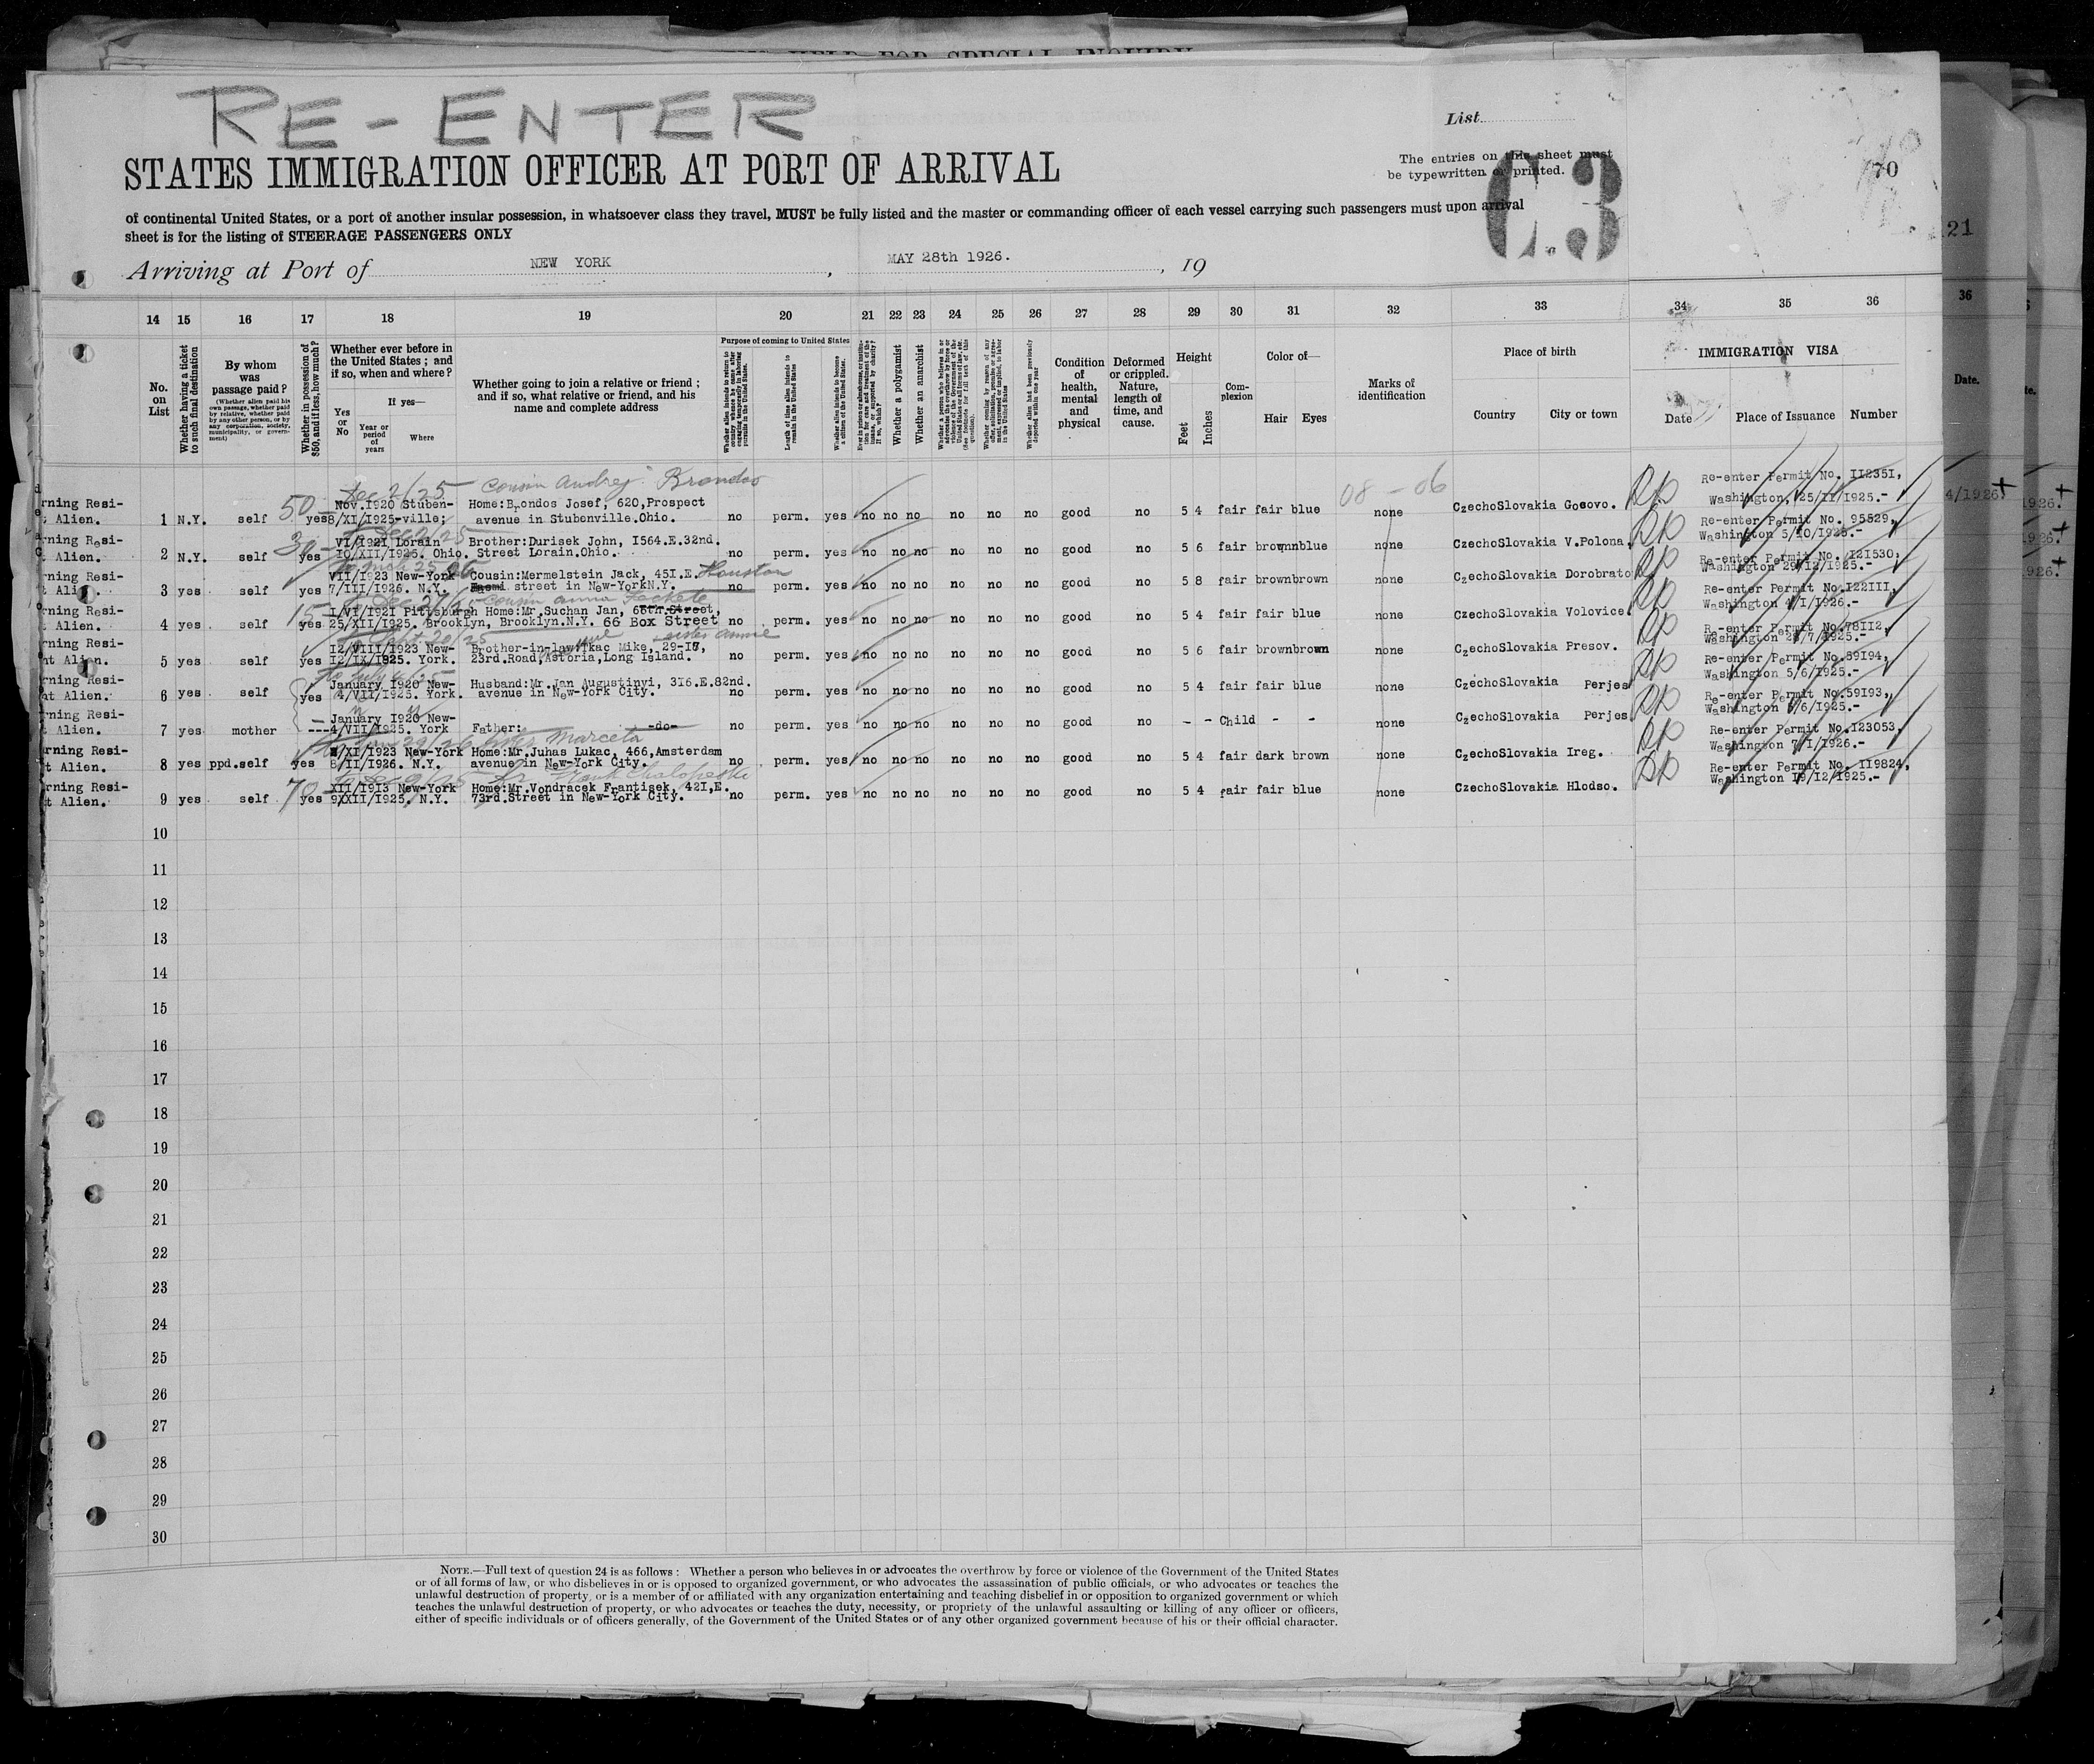 RE-ENTER
List
STATES IMMIGRATION OFFICER AT PORT OF ARRIVAL
The entries on this sheet must
be typewritten or printed.
C3
70
of continental United States, or a port of another insular possession, in whatsoever class they travel, MUST be fully listed and the master or commanding officer of each vessel carrying such passengers must upon arrival
sheet is for the listing of STEERAGE PASSENGERS ONLY
21
Arriving at Port of NEW YORK , MAY 28th 1926. , 19
14 15 16 17 18 19 20 21 22 23 24 25 26 27 28 29 30 31 32 33 34 35 36
36
No. on List
Whether having a ticket to such final destination
By whom was passage paid?
(Whether alien paid his own passage, whether paid by relative, whether paid by any other person, or by any corporation, society, municipality, or government)
Whether in possession of $50, and if less, how much?
Whether ever before in the United States; and if so, when and where?
If yes—
Yes or No
Year or period of years
Where
Whether going to join a relative or friend; and if so, what relative or friend, and his name and complete address
Purpose of coming to United States
Length of time alien intends to remain in the United States
Whether alien intends to become a citizen of the United States.
Whether a polygamist
Whether an anarchist
Condition of health, mental and physical
Deformed or crippled. Nature, length of time, and cause.
Height
Feet
Inches
Complexion
Color of—
Hair Eyes
Marks of identification
Place of birth
Country City or town
IMMIGRATION VISA
Date Place of Issuance Number
Date.
Dec 2/25 cousin Andrej Brondos 08-06
rning Resi- 50 Nov.I920 Stuben- Home:Brondos Josef, 620,Prospect Re-enter Permit No. II235I,
Alien. 1 N.Y. self yes 8/XI/I925-ville; avenue in Stubenville.Ohio. no perm. yes no no no no no no good no 5 4 fair fair blue none CzechoSlovakia Gosovo. Washington, 25/II/I925.-
rning Resi- 30 VI/I92I Lorain Brother:Durisek John, I564.E.32nd. Re-enter Permit No. 95529,
t Alien. 2 N.Y. self yes IO/XII/I925. Ohio. Street Lorain.Ohio. no perm. yes no no no no no no good no 5 6 fair brownnblue none CzechoSlovakia V.Polona. Washington 5/IO/I925.-
rning Resi- VII/I923 New-York Cousin:Mermelstein Jack, 45I.E. Houston Re-enter Permit No. I2I530,
t Ali 3 yes self yes 7/III/I926. N.Y. street in New-YorkN.Y. no perm. yes no no no no no no good no 5 8 fair brownbrown none CzechoSlovakia Dorobrato Washington 29/I2/I925.-
cousin anna Feckete
rning Resi- 15 I/VI/I92I Pittsburgh Home:Mr.Suchan Jan, 66th.Street, Re-enter Permit No.I22III,
t Alien. 4 yes self yes 25/XII/I925. Brooklyn, Brooklyn.N.Y. 66 Box Street no perm. yes no no no no no no good no 5 4 fair fair blue none CzechoSlovakia Volovice. Washington 4/I/I926.-
Sept 20/25 sister Annie
rning Resi- I2/VIII/I923 New- Brother-in-law:Tkac Mike, 29-I7, Re-enter Permit No.78II2,
nt Alien. 5 yes self yes I2/IX/I925. York. 23rd.Road,Astoria,Long Island. no perm. yes no no no no no no good no 5 6 fair brownbrown none CzechoSlovakia Presov. Washington 28/7/I925.-
July 4/25
rning Resi- January I920 New- Husband:Mr.Jan Augustinyi, 3I6.E.82nd. Re-enter Permit No.59I94,
nt Alien. 6 yes self yes /4/VII/I925. York. avenue in New-York City. no perm. yes no no no no no no good no 5 4 fair fair blue none CzechoSlovakia Perjes Washington 5/6/I925.-
rning Resi- January I920 New- Re-enter Permit No.59I93,
t Alien. 7 yes mother --- 4/VII/I925. York Father: -do- no perm. yes no no no no no no good no - - Child - - none CzechoSlovakia Perjes Washington 5/6/I925.-
Marceta
urning Resi- /XI/I923 New-York Home:Mr.Juhas Lukac, 466,Amsterdam Re-enter Permit No.I23053,
t Alien. 8 yes ppd.self yes 8/II/I926. N.Y. avenue in New-York City. no perm. yes no no no no no no good no 5 4 fair dark brown none CzechoSlovakia Ireg. Washington 7/I/I926.-
Dec 9/25 Frank
urning Resi- 70 XII/I9I3 New-York Home:Mr.Vondracek Frantisek, 42I,E. Re-enter Permit No. II9824,
t Alien. 9 yes self yes 9/XII/I925. N.Y. 73rd.Street in New-York City. no perm. yes no no no no no no good no 5 4 fair fair blue none CzechoSlovakia Hlodso. Washington I9/I2/I925.-
10
11
12
13
14
15
16
17
18
19
20
21
22
23
24
25
26
27
28
29
30
NOTE.—Full text of question 24 is as follows: Whether a person who believes in or advocates the overthrow by force or violence of the Government of the United States
or of all forms of law, or who disbelieves in or is opposed to organized government, or who advocates the assassination of public officials, or who advocates or teaches the
unlawful destruction of property, or is a member of or affiliated with any organization entertaining and teaching disbelief in or opposition to organized government or which
teaches the unlawful destruction of property, or who advocates or teaches the duty, necessity, or propriety of the unlawful assaulting or killing of any officer or officers,
either of specific individuals or of officers generally, of the Government of the United States or of any other organized government because of his or their official character.